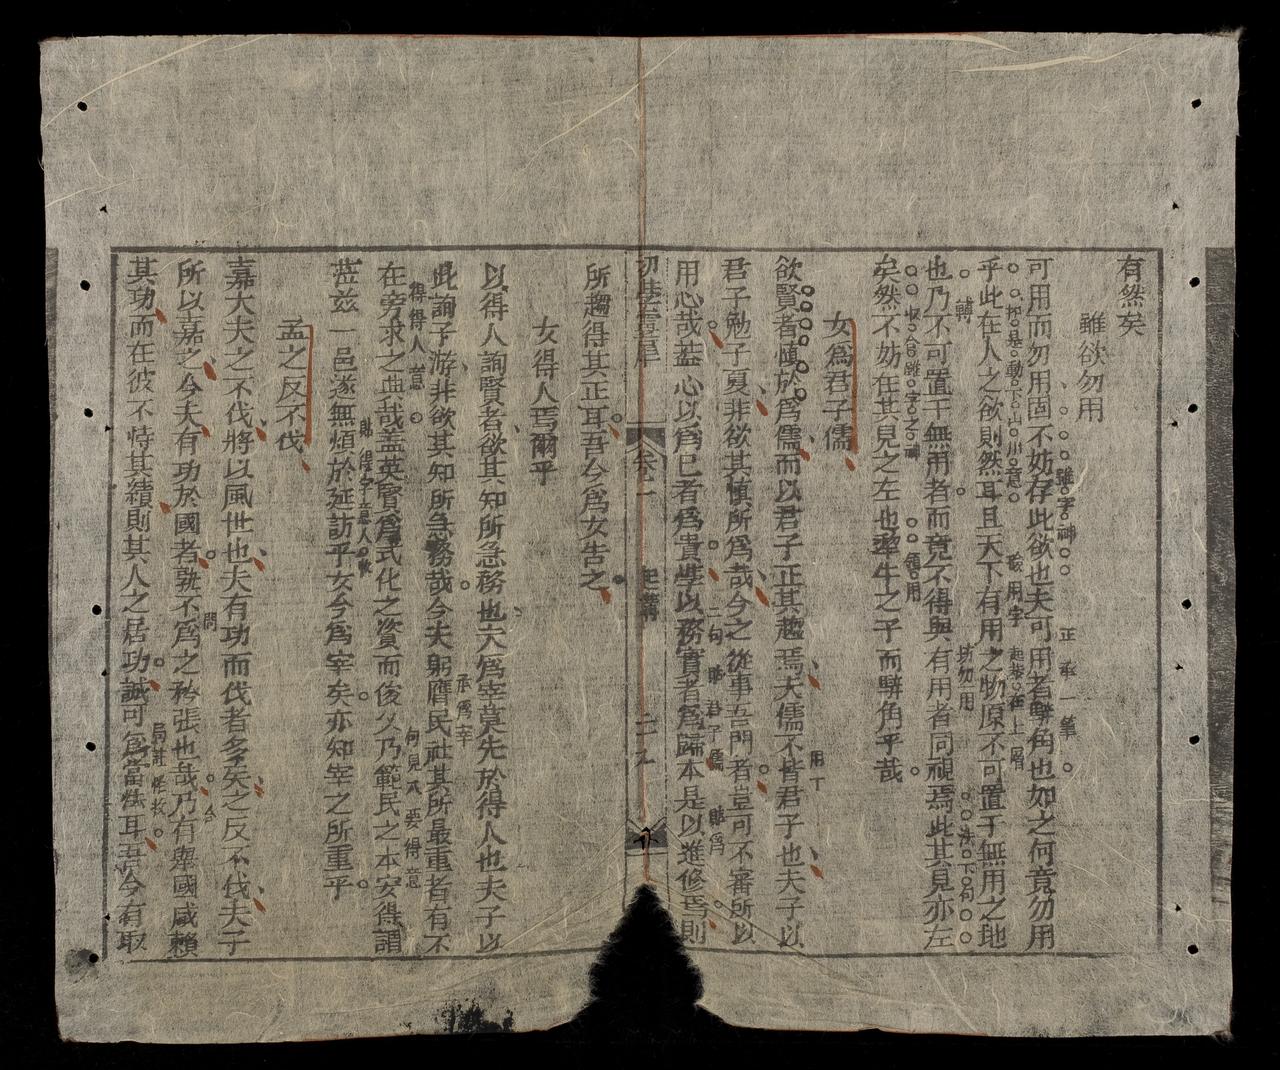 有然矣
雖欲勿用
可用而勿用固不妨存此欲也夫可用者騂角也如之何竟勿用
乎此在人之欲則然耳且天下有用之物原不可置于無用之地
也乃不可置于無用者而竟不得與有用者同視焉此其見亦左
矣然不妨在其見之左也犂牛之子而騂角乎哉
女為君子儒
欲賢者慎於為儒而以君子正其趨焉夫儒不皆君子也夫子以
君子勉子夏非欲其慎所為哉今之從事吾門者豈可不審所以
用心哉蓋心以為己者為貴學以務實者為歸本是以進修焉則
初學雲章
卷一
起講
二十九
所趨得其正耳吾今為女告之
女得人焉爾乎
以得人詢賢者欲其知所急務也夫為宰莫先於得人也夫子以
此詢子游非欲其知所急務哉今夫躬膺民社其所最重者有不
在旁求之典哉蓋英賢為式化之資而俊乂乃範民之本安得謂
蒞茲一邑遂無煩於延訪乎女今為宰矣亦知宰之所重乎
孟之反不伐
嘉大夫之不伐將以風世也夫有功而伐者多矣之反不伐夫子
所以嘉之今夫有功於國者孰不為之矜張也哉乃有舉國咸賴
其功而在彼不恃其績則其人之居功誠可為當法耳吾今有取